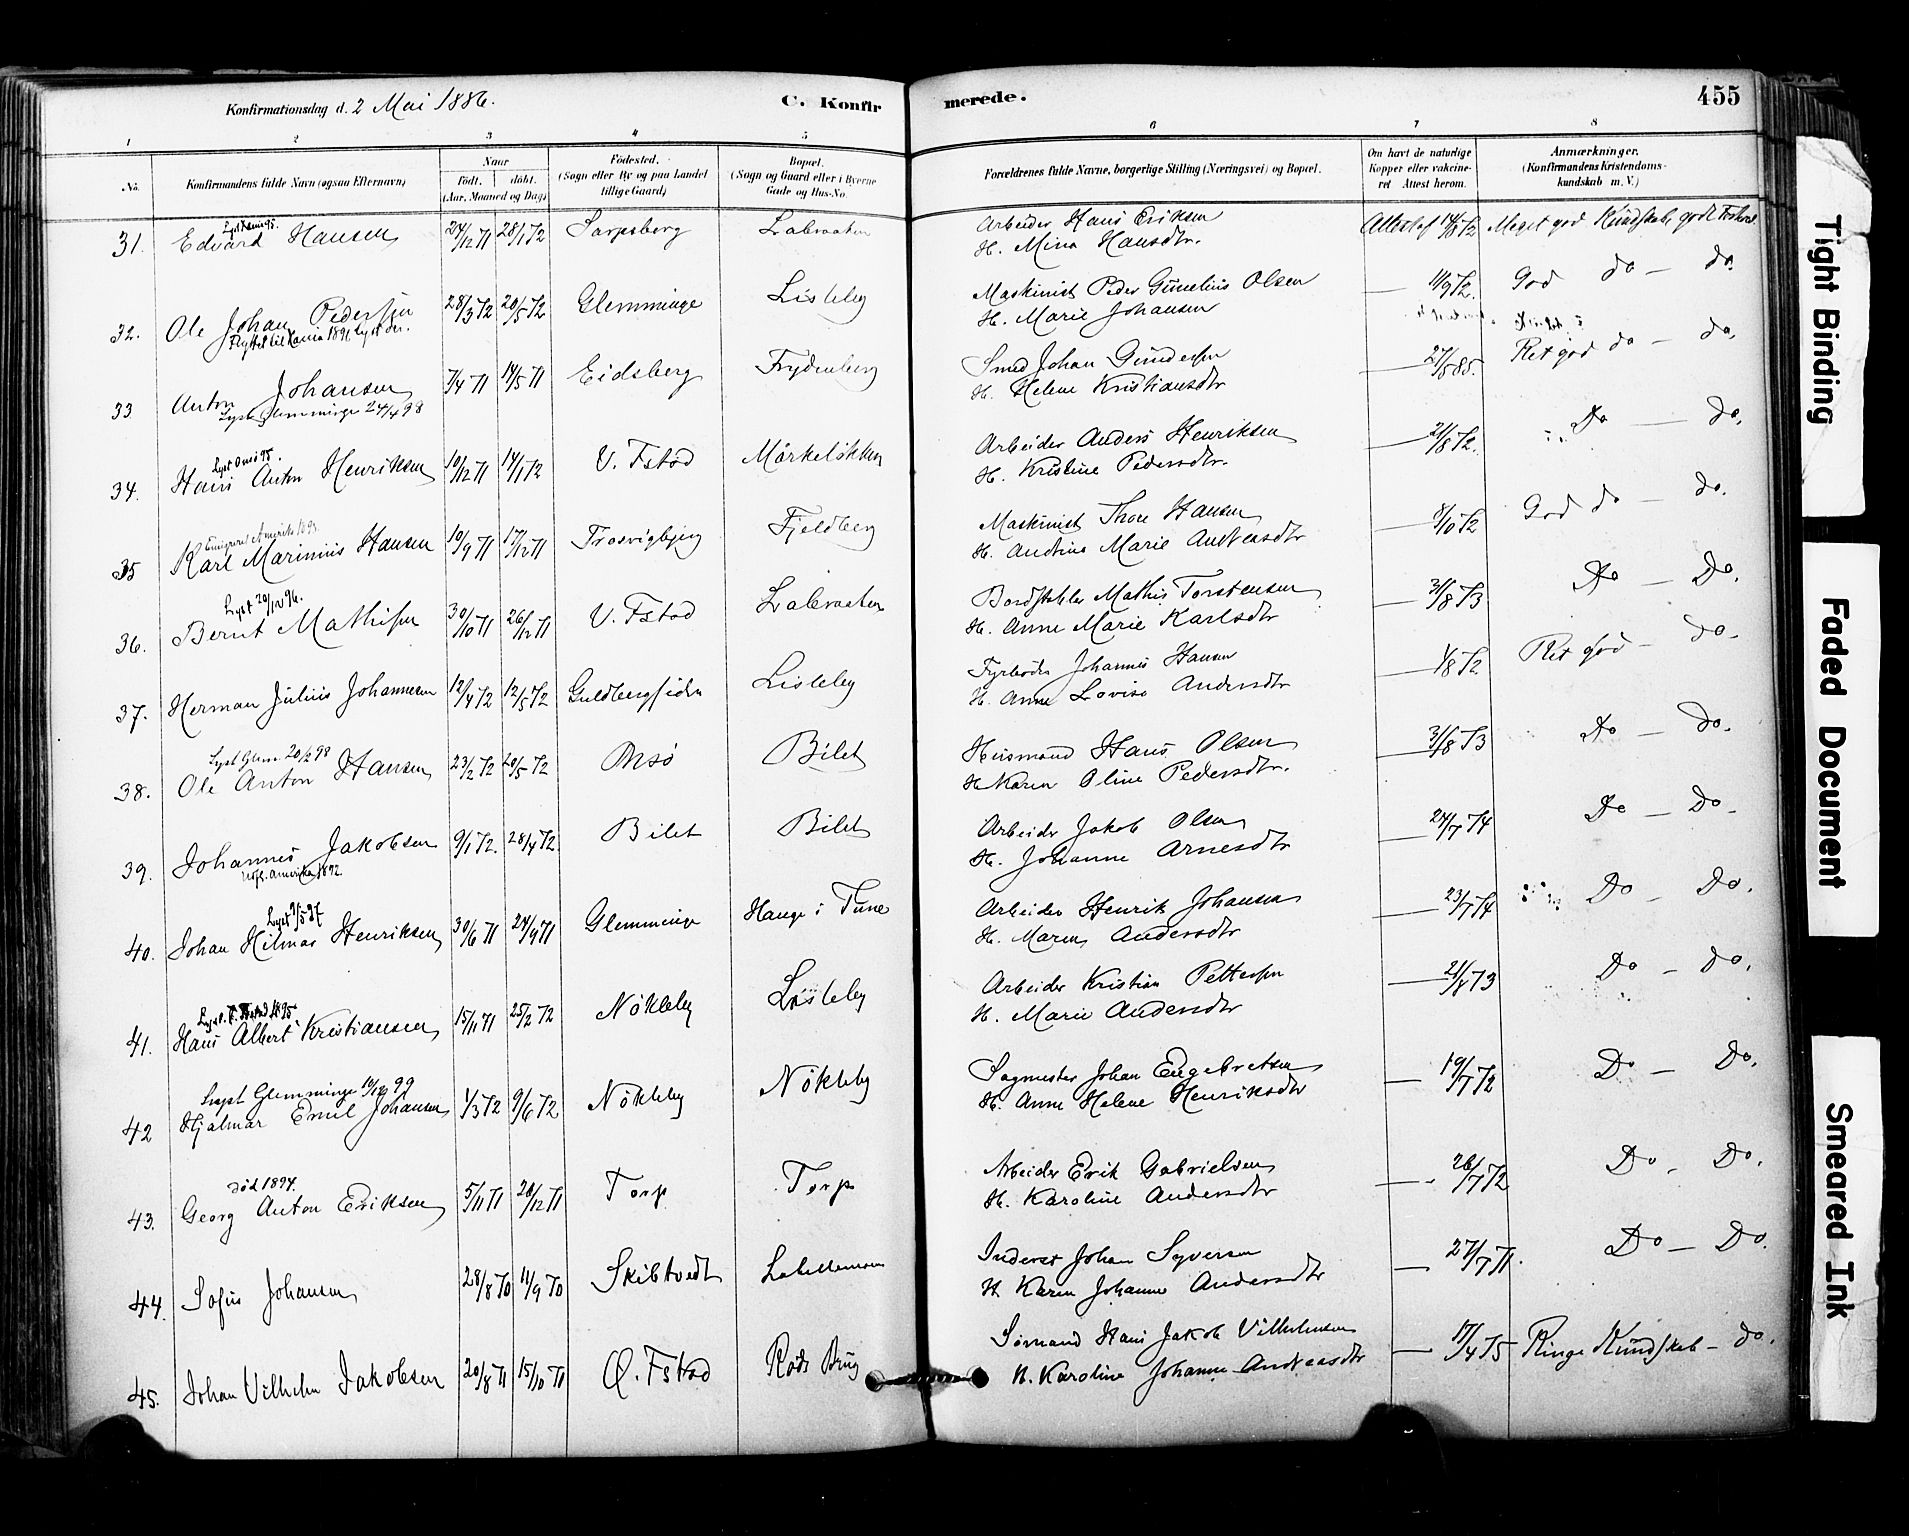 Konfirmationsdag d. 2 Mai 1886. C. Konfirmerede. 455
1 2 3 4 5 6 7 8
No. Konfirmandens fulde Navn (ogsaa Efternavn) Naar født, døbt. (Aar, Maaned og Dag) Fødested. (Sogn eller By og paa Landet tillige Gaard) Bopæl. (Sogn og Gaard eller i Byerne Gade og Hus-No. Forældrenes fulde Navne, borgerlige Stilling (Næringsvei) og Bopæl. Om havt de naturlige Kopper eller vaccineret Attest herom. Anmærkninger. (Konfirmandens Kristendomskundskab m. V.)
31. Edvard Hansen 24/12 71 28/1 72 Sarpsborg Labraaten Arbeider Hans Eriksen Attest af 14/8 72 Meget god Kundskab, godt Forhold.
H. Mina Hansdtr.
32. Ole Johan Pedersen 28/3 72 20/5 72 Glemminge Lisleby Maskinist Peder Gunelius Olsen 11/9 72. God do — do.
Flyttet til Kania 1891 lyst der. H. Marie Johansen
33 Anton Johansen 7/4 71 14/5 71 Eidsberg Frydenberg Smed Johan Gundersen 27/5 85. Ret god do — do.
Lyst Glemminge 24/4 98 H. Helene Kristiansdtr
Lyst Onsø 95.
34. Hans Anton Henriksen 10/12 71 14/1 72 V. Fstad Mårkeløkken Arbeider Anders Henriksen 21/8 72. Do — do.
H. Kristine Pedersdtr.
Emigreret Amerika 1893.
35 Karl Marinius Hansen 10/9 71 17/12 71 Trosvigbjerg Fjeldberg Maskinist Thore Hansen 8/10 72 God do — do.
H. Andrine Marie Andreasdtr
Lyst 20/12 96.
36. Bernt Mathisen 30/10 71 26/12 71 V. Fstad Labraaten Bordstabler Mathis Torstensen 31/8 73 Do — Do.
H. Anne Marie Karlsdtr
37. Herman Julius Johannesen 12/4 72 12/5 72 Guldbergsiden Lisleby Fyrbøder Johannes Hansen 1/8 72 Ret god — do.
H. Anne Lovise Andersdtr
Lyst Glem. 20/2 98
38. Ole Anton Hansen 23/2 72 20/5 72 Onsø Bilet Husmand Hans Olsen 31/8 73 Do — Do.
H Karen Oline Pedersdtr.
39. Johannes Jakobsen 9/1 72. 28/4 72 Bilet Bilet Arbeider Jakob Olsen 24/7 74 Do — Do.
Udfl. Amerika 1892 H. Johanne Arnesdtr
40. Johan Hilmar Henriksen 30/6 71 24/9 71 Glemminge Hauge i Tune Arbeider Henrik Johansen 23/7 74 Do — Do.
H. Maren Andersdtr
41. Hans Albert Kristiansen 15/11 71 25/2 72 Nøkleby Lisleby Arbeider Kristian Pettersen 21/8 73 Do — do.
H. Marie Andersdtr
Lyst Glemminge 10/12 99
42 Hjalmar Emil Johansen 1/3 72 9/6 72 Nøkleby Nøkleby Sagmester Johan Engebretsen 19/7 72 Do — Do.
H. Anne Helene Henriksdtr
død 1894.
43. Georg Anton Eriksen 5/11 71 26/12 71 Torp Torp Arbeider Erik Gabrielsen 26/7 72 Do — Do.
H. Karoline Andersdtr
44. Sofus Johansen 28/8 70 11/9 70 Skibtvedt Labellemoen Inderst Johan Syversen 27/7 71. Do — Do.
H Karen Johanne Andersdtr
45. Johan Vilhelm Jakobsen 20/8 71 15/10 71 Ø. Fstad Røds Brug Sømand Hans Jakob Vilhelmsen 17/4 75 Ringe Kundskab — do.
H. Karoline Johanne Andreasdtr
Tight Binding
Faded Document
Smeared Ink